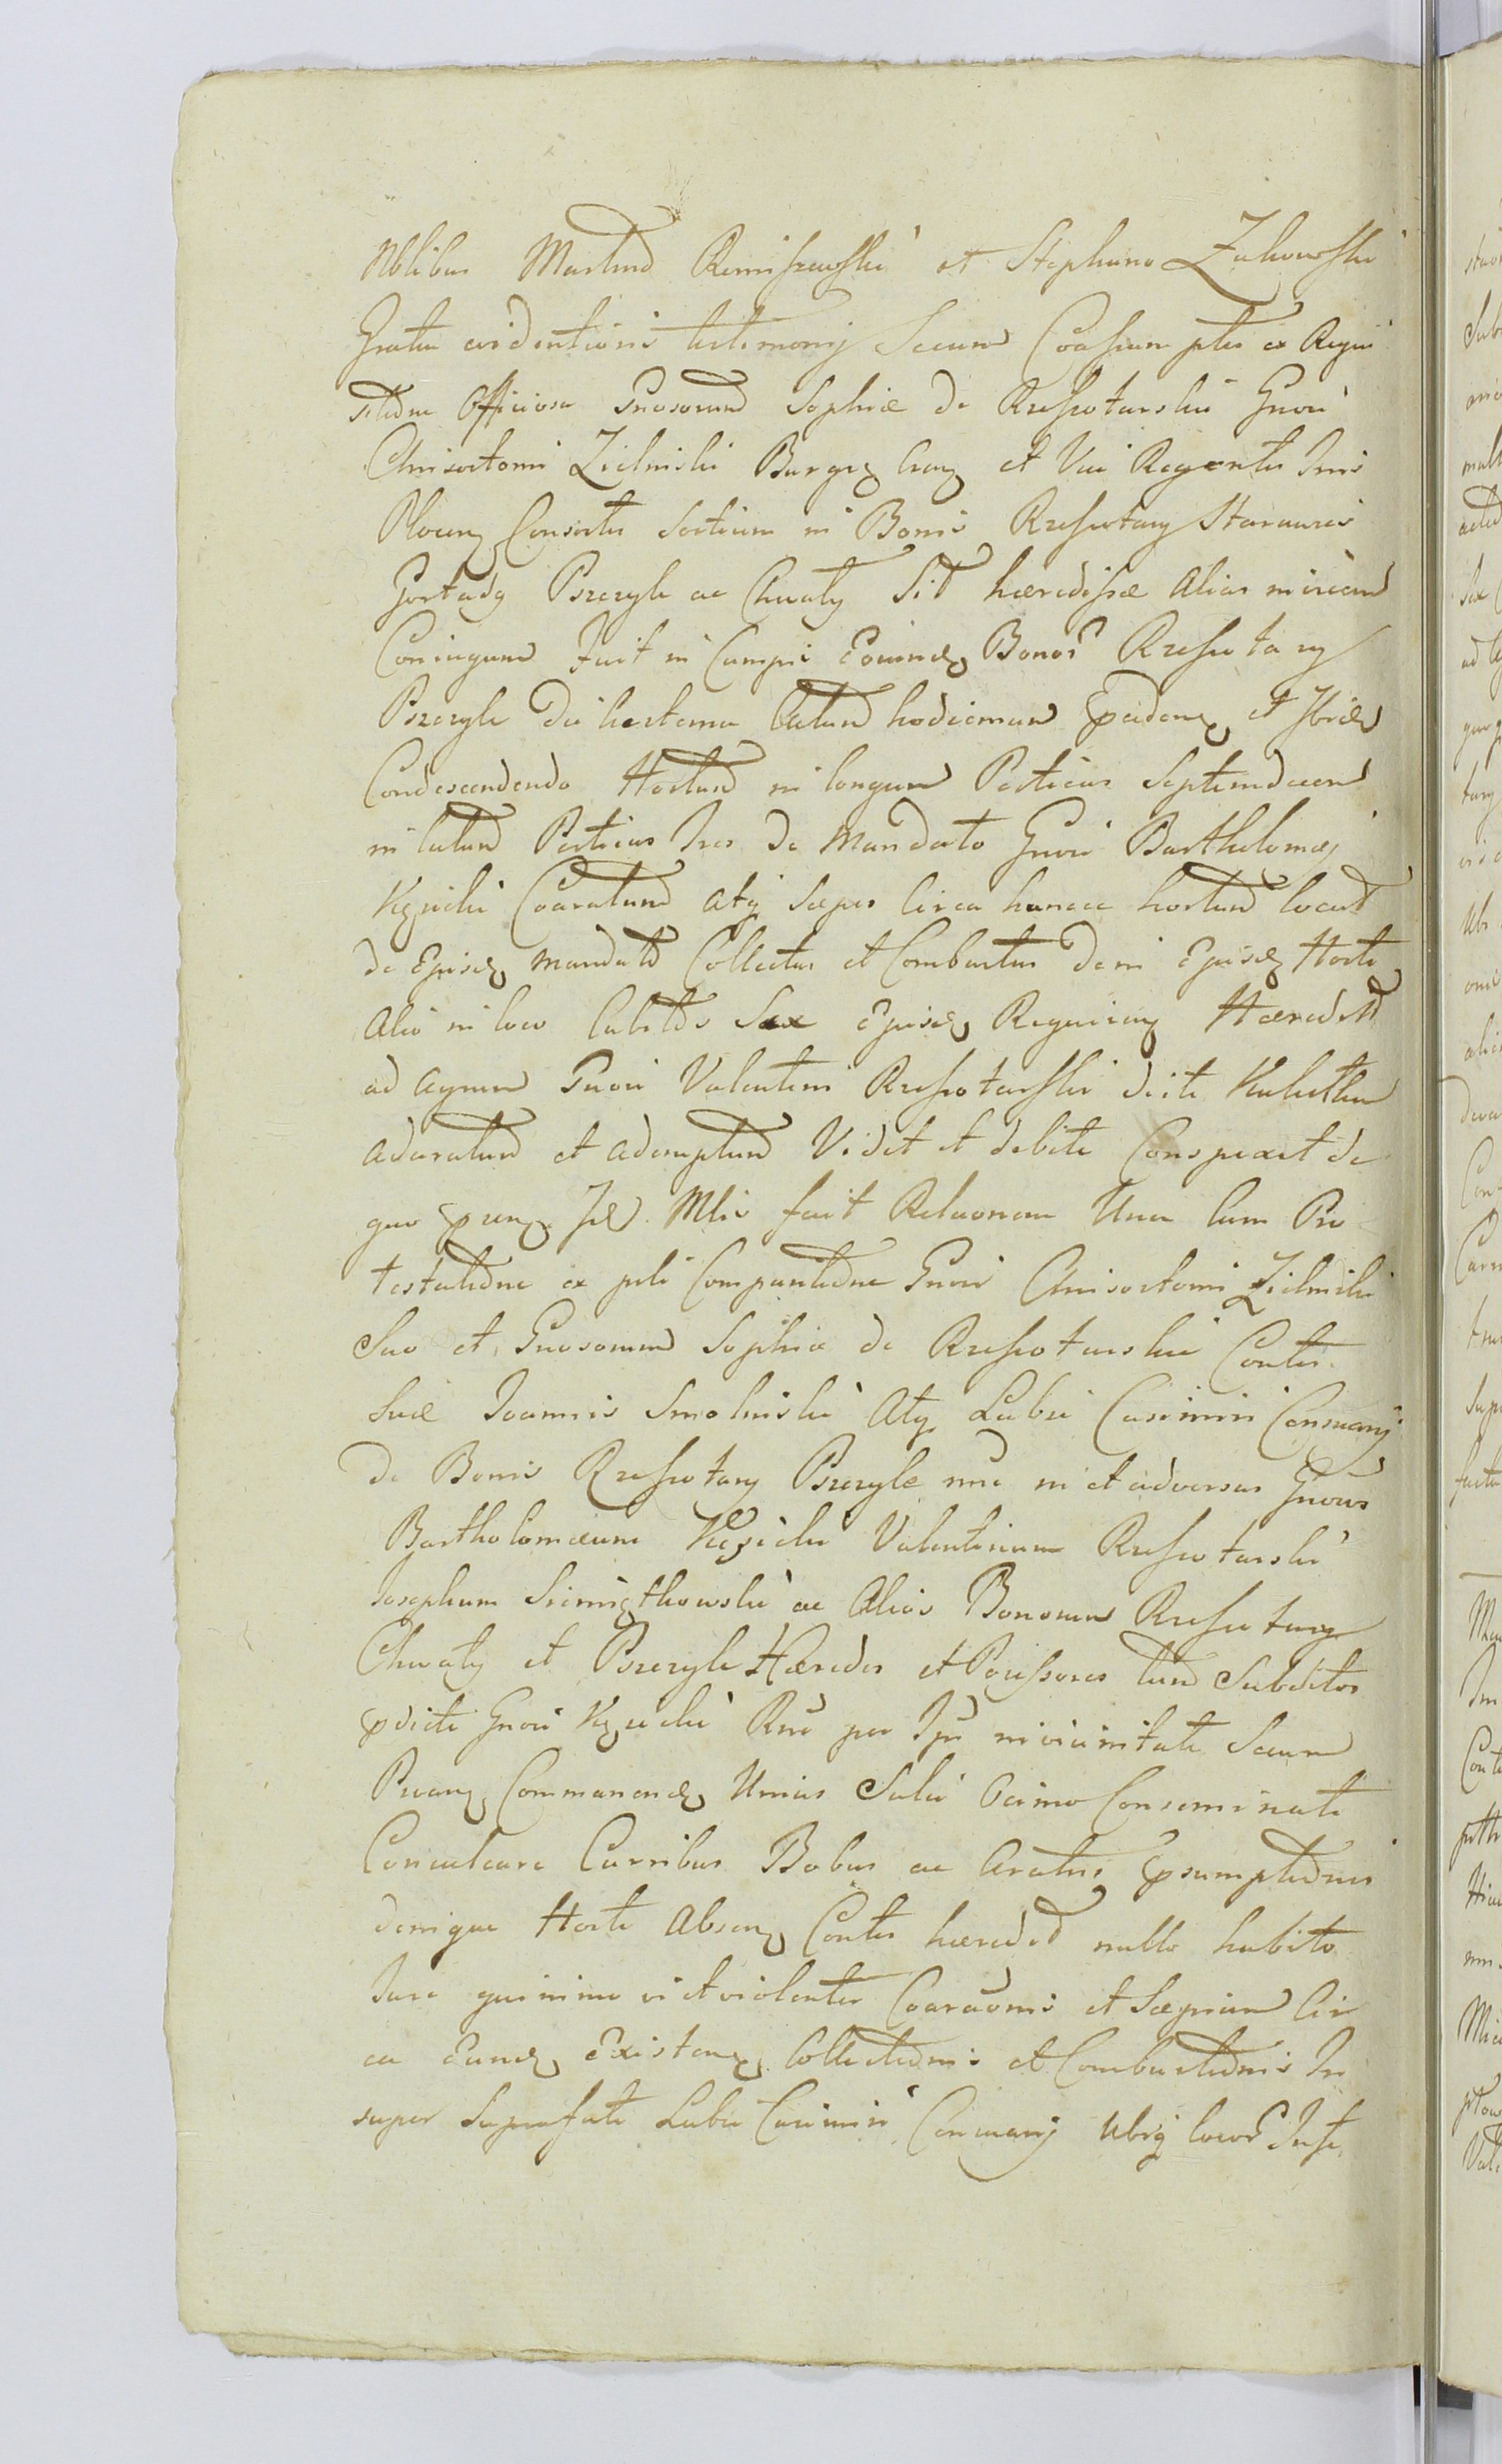 Nblibus Martino Remiszewski et Stephano Zukowski
Gratia evidentioris testimonij Secum Coassumptis ex Requi
sitione Officiosa Gnosorum Sophiae de Rzeszotarskie Gnosi
Chrisostomi Zielinski Burgr Cray et Vice Regentis Terris
Plocen Consortis Sortium in Bonis Rzeszotary Stara wies
Gortaty Pszczyle ac Chwaly Sit haeredissae Alias in vicem
Conjugum fuit in Campis Eorund Bonor Rzeszotary
Pszczyle die hesterna latum hodiernum et Ibid
Condescendendo Hortum in longum Perticas Septemdecem
in latum Perticas Tres de Mandato Gnosi Bartholomaei
Kęsicki Coaratum atq Saepes Circa hancce hortum locat
de Ejusd mandato Collectas et Combustas dein Ejusd Horti
Alio in loco Cubitos Sex Ejusd Requiren Haeredit
ad agrum Gnosi Valentini Rzeszotarski dicti
adaratum et ademptum Vidit et debite Conspexit de
quo fecit Relaonem Una Cum Pro
testatione ex psli Comparitione Gnosi Chrisostomi Zielinski
Suo et Gnosorum Sophiae de Rzeszotarskie Contis
Suae Joannis Smolinski Atq Labsi Casimiri
de Bonis Rzeszotary Pszczyle nne in et adversus Gnosos
Bartholomaeum Kęsicki Valentinum Rzeszotarski
Josephum Siemiątkowski ac Alios Bonorum Rzeszotary
Chwaly et Pszczyle Haeredes et Possessores tum Subditos
pdicti Gnosi Kęsicki Rne per Ips in vicinitate Secum
Commanend Unius Sulci Conseminati
Conculcare Curribus Bobus ac Aratris psumptionis
denique Horti Absen Contis haeredit nullo habito
Jure quinimo vi et violenter Coaraonis et Saepium Cir
ca Eund Existen Collectionis et Combustionis In
super Suprafati Labsi Casimiri Ubiq locor